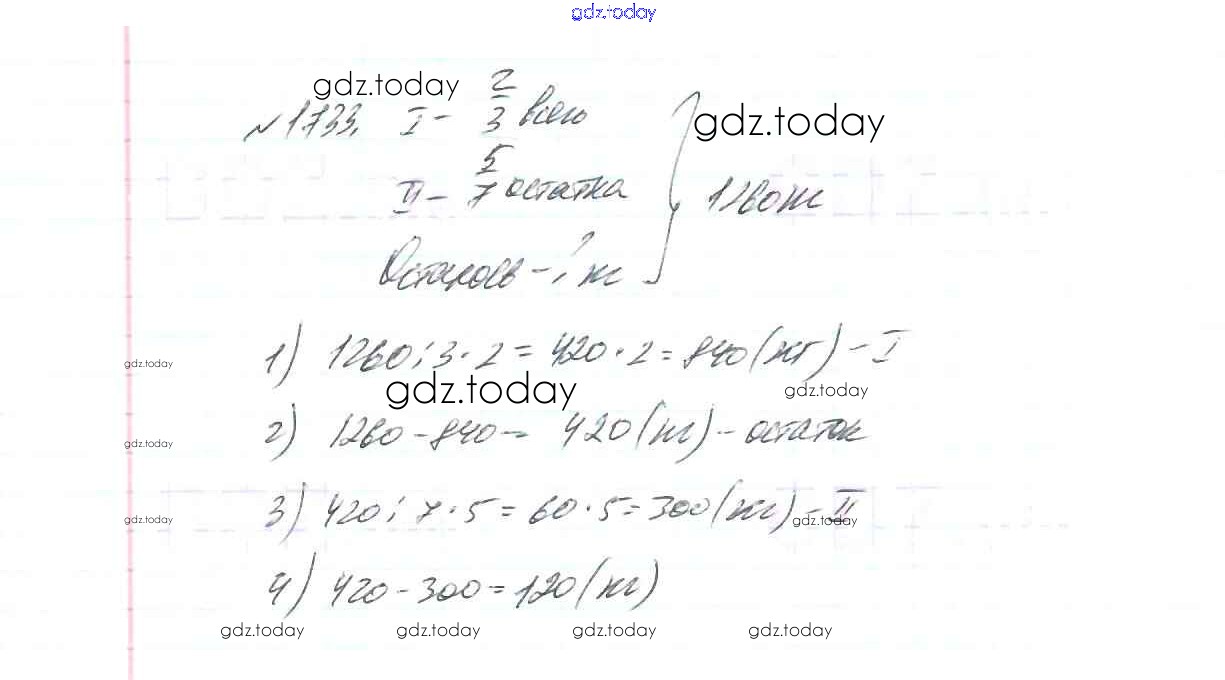 gdz.today
gdz.today
№1733. I - 2/3 всего
gdz.today
II - 5/7 остатка } 1260 кг
Осталось - ? кг
1) 1260 : 3 · 2 = 420 · 2 = 840 (кг) - I
gdz.today
gdz.today
gdz.today
2) 1260 - 840 = 420 (кг) - остаток
gdz.today
3) 420 : 7 · 5 = 60 · 5 = 300 (кг) - II
gdz.today
gdz.today
4) 420 - 300 = 120 (кг)
gdz.today gdz.today gdz.today gdz.today